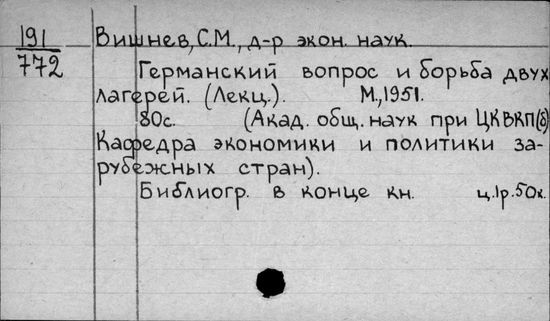 191
772
Вишнев, С.М., д-р экон. наук.
Германский вопрос и борьба двух
лагерей. (Лекц.). М., 1951.
80с. (Акад. общ. наук при ЦК ВКП(б)
Кафедра экономики и политики за-
рубежных стран).
Библиогр. в конце кн. ц. 1р. 50к.